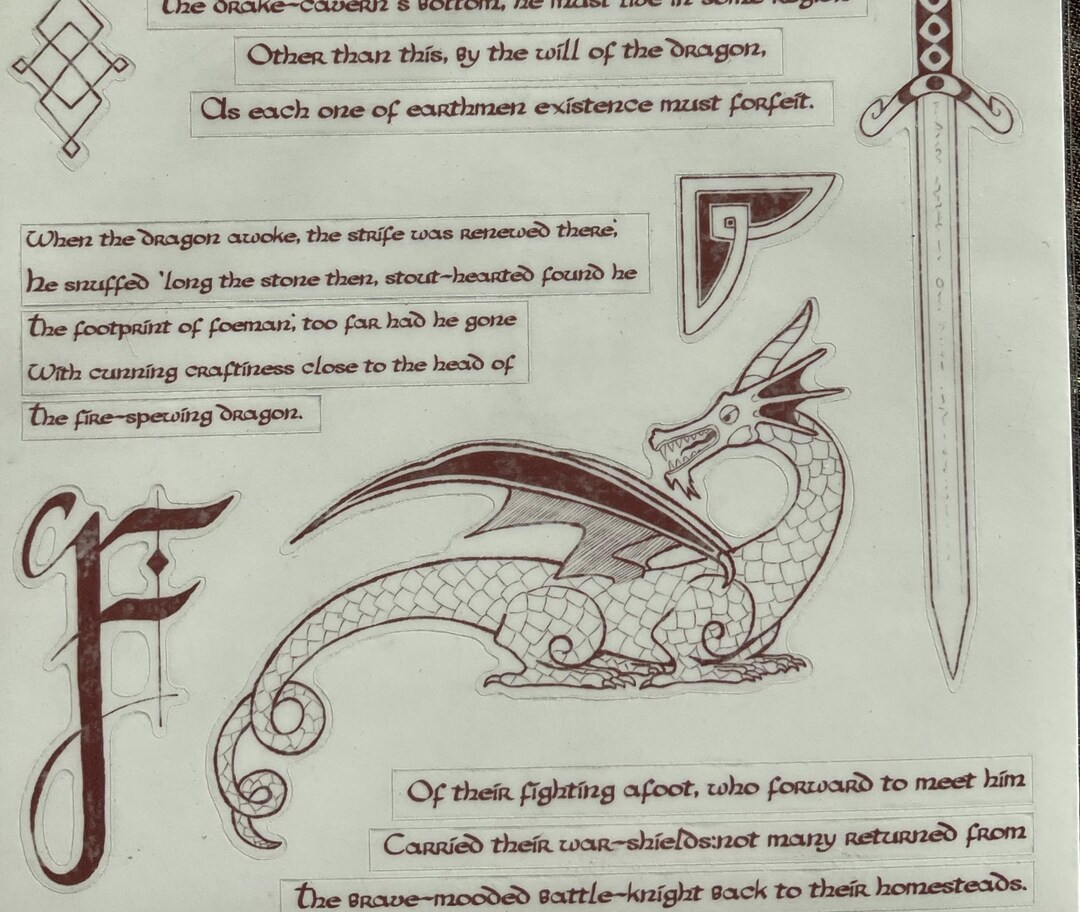 the drake-cavern's bottom, he must live in some region
Other than this, by the will of the dragon,
As each one of earthmen existence must forfeit.
When the dragon awoke, the strife was renewed there;
he snuffed 'long the stone then, stout-hearted found he
the footprint of foeman; too far had he gone
With cunning craftiness close to the head of
the fire-spewing dragon.
F
Of their fighting afoot, who forward to meet him
Carried their war-shields:not many returned from
the brave-mooded battle-knight back to their homesteads.